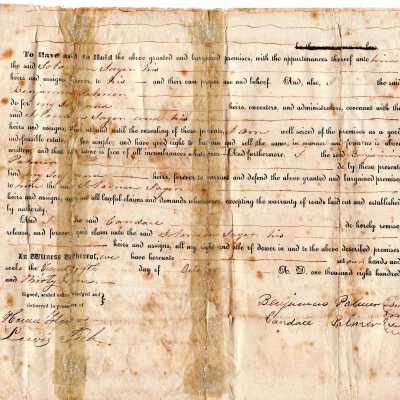 To Have and to Hold the above granted and bargained premises, with the appurtenances thereof unto him
the said Solomon Sayer his
heirs and assigns forever, to his and their own proper use and behoof. And, also, I the said
Benjamin Palmer
do for my self and heirs, executors, and administrators, covenant with the
said Solomon Sayer and his
heirs and assigns, that at and until the ensealing of these presents, I am well seized of the premises as a good
indefeasible estate, in fee simple; and have good right to bargain and sell the same, in manner and form as is above
written; and that the same is free of all incumbrances whatsoever. And furthermore, I the said Benjamin
Palmer do by these presents
bind my self and heirs, forever to warrant and defend the above granted and bargained premises
to him the said Solomon Sayer
heirs and assigns, against all lawful claims and demands whatsoever, excepting the warranty of roads laid out and established
by authority.
And I the said Candace do hereby remise
release, and forever quit claim unto the said Solomon Sayer his
heirs and assigns, all my right and title of dower in and to the above described premises
In Witness Whereof, we have hereunto set our hands and
seals the day of A. D. one thousand eight hundred
and thirty
Signed, sealed and delivered
delivered in presence of
Benjamin Palmer
Candace Palmer
Lewis